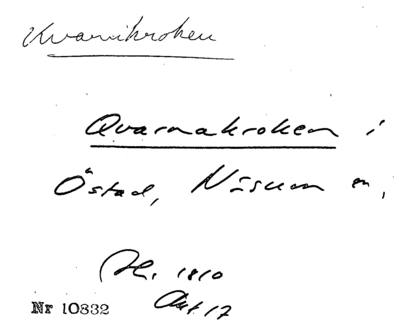 Kvarnikroken
Qvarnakroken i
Östad, Näsum sn,
Hl. 1810
Akt 17
Nr 10832